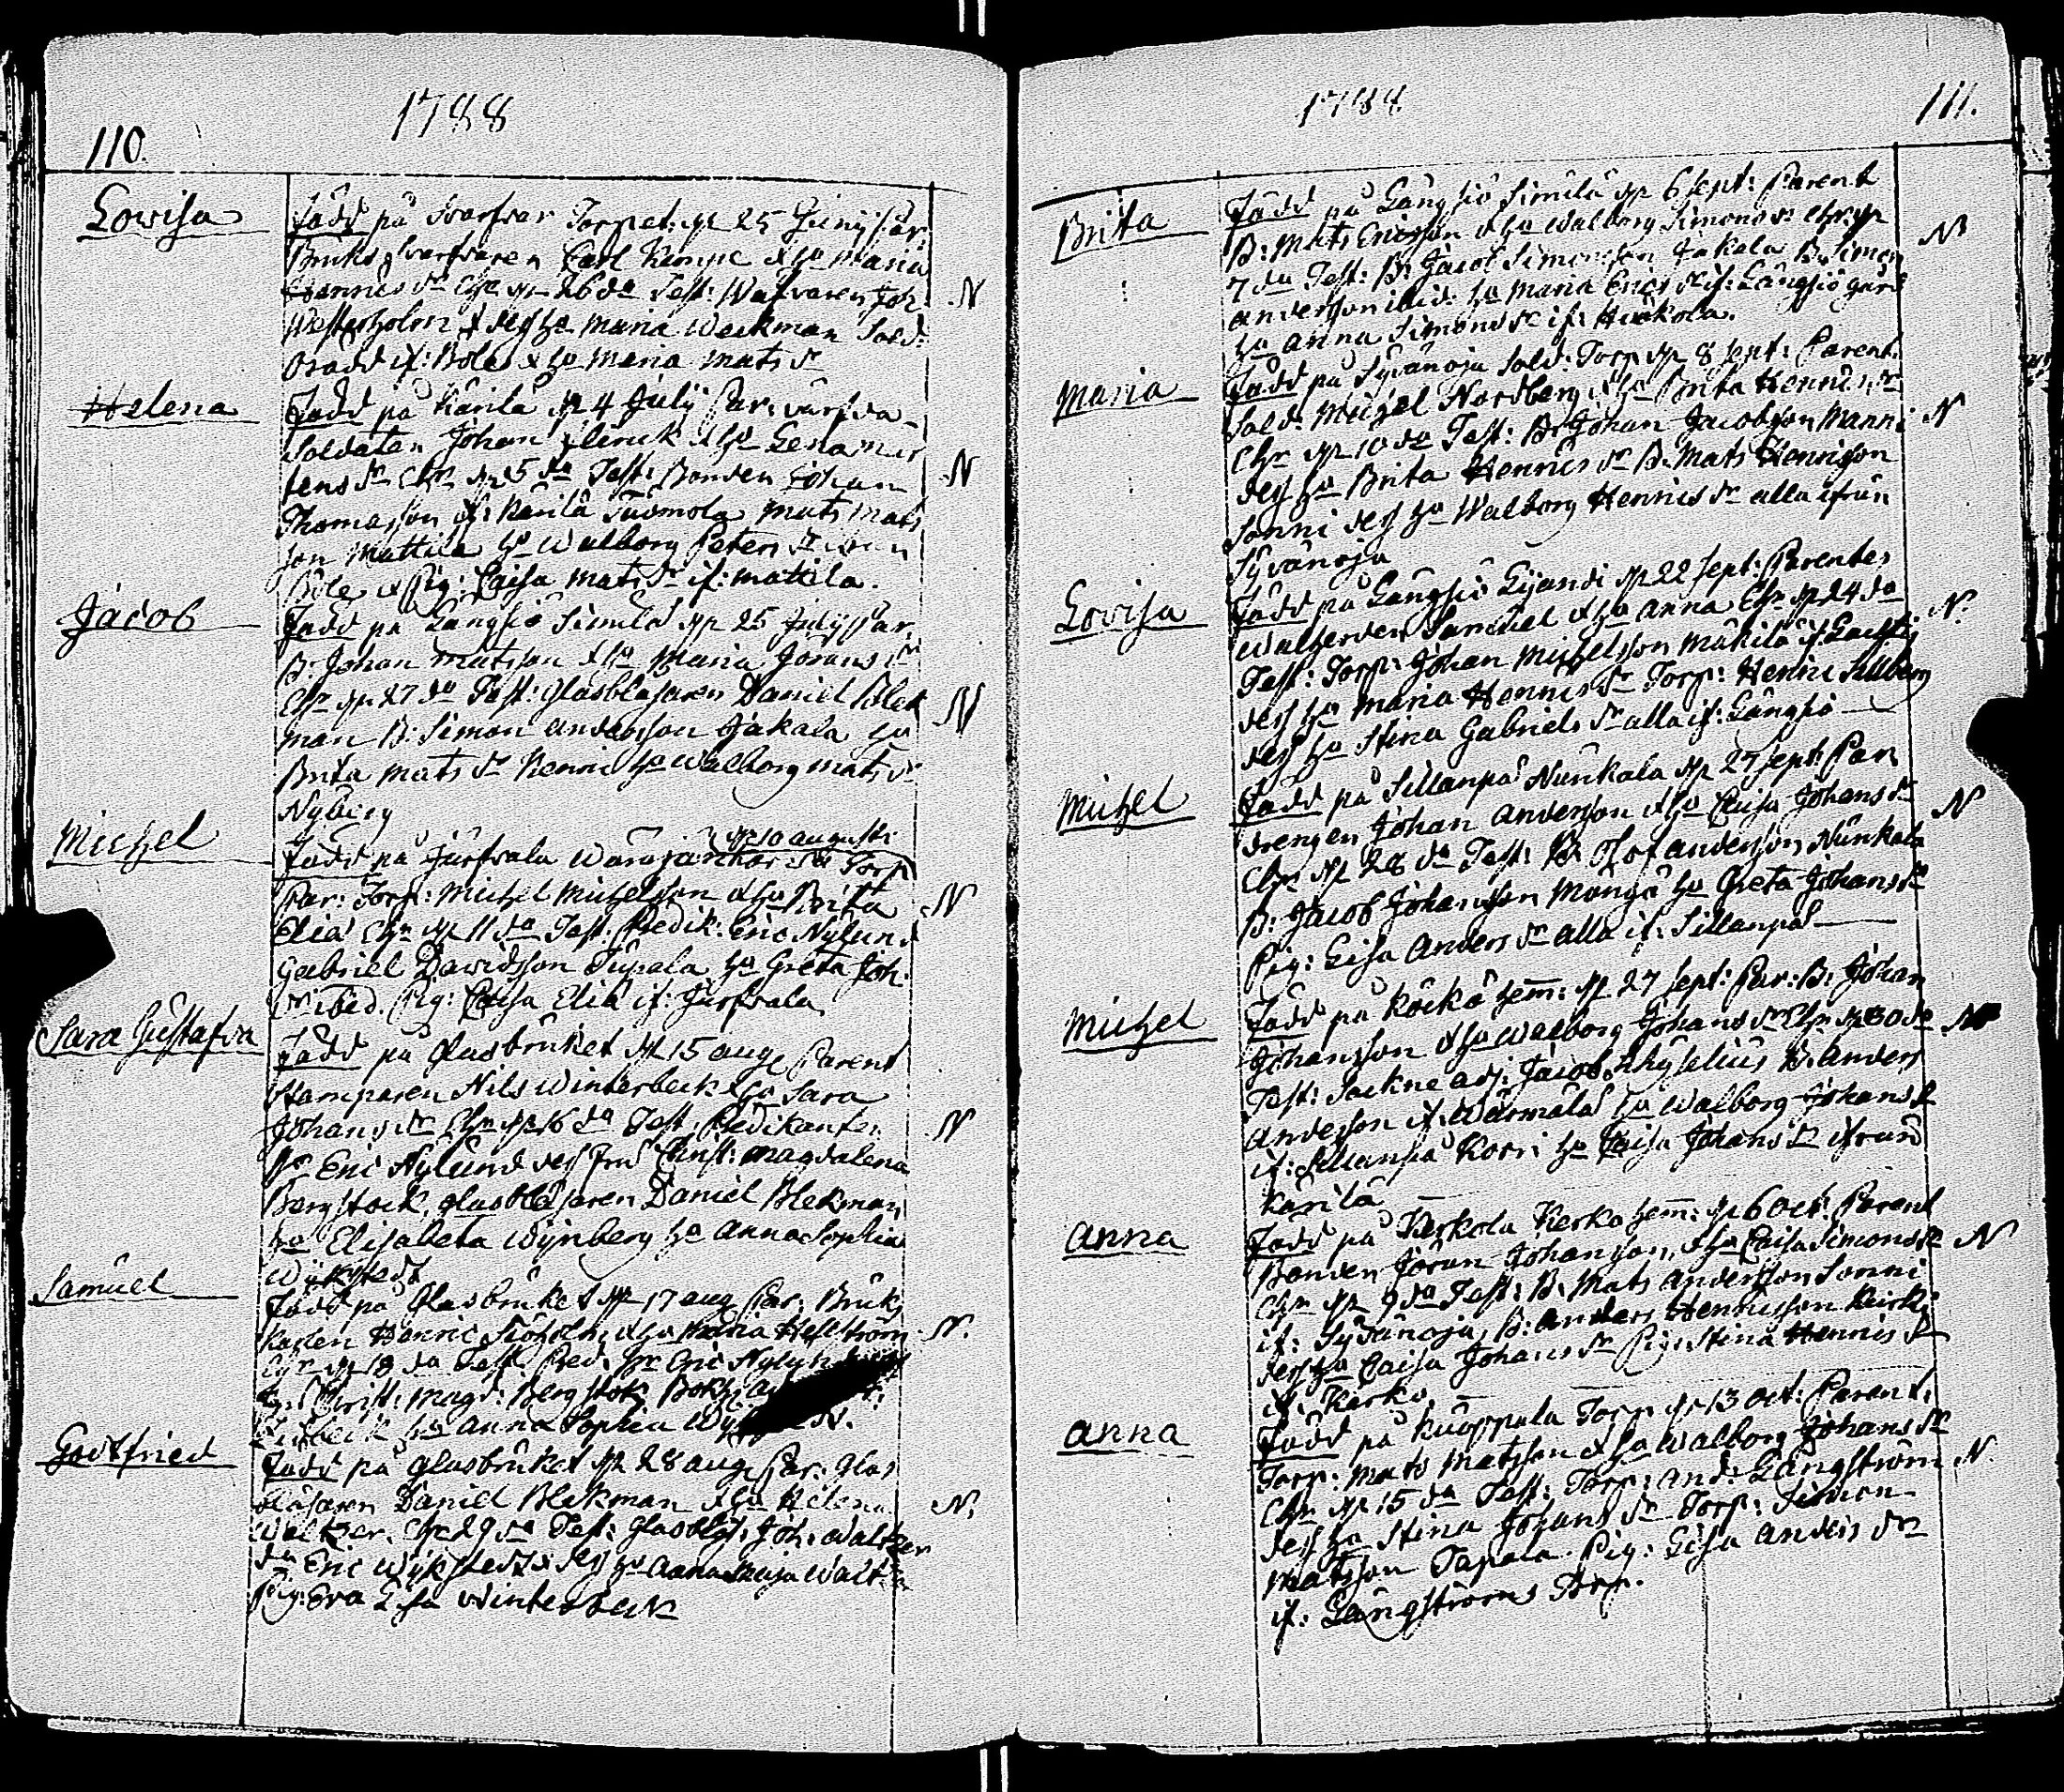 1788
110.
Lovisa
Född på Svarfvar Torpet d. 25 Junij Par:
Bruks Svarfvaren Carl Kempe & Hu Maria
Henricsdr Chr. d. 26 do Test: Walzaren Joh:
Westerholm & dess Hu Maria Weckman Sold:
Bradd if: Böle & Hu Maria Matsdr
N
Helena
Född på Kärilä d. 4 Julij Par: värfva
Soldaten Johan & Hu Lena Mår
tensdr Chr. d. 5 do Test: Bonden Johan
Thomasson if: Kärilä Tuomola Mats Mats
son Mattila Hu Walborg Petersdr ifrån
Böle & Pig: Caisa Matsdr if: Mattila.
N
Jacob
Född på Långsiö Simila d. 25 Julij Par.
B: Johan Matsson & Hu Maria Jöransdr
Chr. d. 27 do Test: Glasblåsaren Daniel Blek
man B: Simon Andersson Jakala Hu
Brita Matsdr Henri Hu Walborg Matsdr
Nyberg
N
Michel
d. 10 augusti
Född på Jurfvala Torp
Par: Torp: Michel Michelsson & Hu Brita
Elia Chr. d. 11 do Test. Predik: Eric Nylund
Gabriel Davidsson Tupala Hu Greta Joh:
dr ibid. Pig: Caisa Elia if: Jurfvala
N
Sara Gustafva
Född på Glasbruket d. 15 aug Parent
Stamparen Nils Winterbeck & Hu Sara
Johansdr Chr. d. 16 do Test. Predikanten
Hr Eric Nylund dess fru Christ: Magdalena
Bergstock, Glasblåsaren Daniel Blekman
Hu Elisabeta Wynberg Hu Anna Sophia
Wykstedt
N
Samuel
Född på Glasbruket d. 17 aug Par: Bruks
karlen Henric Siöholm & Hu Maria Hellström
Chr. d. 18 do Test. Pred. Hr Eric Nylund
Christ: Magd: Bergstok Bokh:
Hu Anna Sophia
N.
Gottfried
Född på Glasbruket d. 28 aug Par: Glas
blåsaren Daniel Blekman & Hu Helena
Waltzer. Chr. 29 do Test: Glasblås: Joh: Waltzer
do Eric Wykstedt & dess Hu Anna Maja Walt
Pig: Eva Lisa Winterbeck
N.
1788
111.
Brita
Född på Långsiö Simila d. 6 Sept: Parent
B: Mats Ericsson & Hu Walborg Simonsdr Chr. d.
7 do Test: B: Jacob Simonsson Jakala B. Simon
Andersson ibid: Hu Maria Ericsdr if: Långsiö gård
Hu Anna Simonsdr if: Huikola.
N
Maria
Född på Syvänoja Sold: Torp d. 8 Sept: Parent.
Sold: Michel Nordberg & Hu Brita Henricsdr
Chr. d. 10 do Test: B: Johan Jacobsson Manni
dess Hu Brita Henricsdr B. Mats Henricsson
Sonni dess Hu Walborg Henricsdr alla ifrån
Syvänoja
N
Lovisa
Född på Långsiö Lijandi d. 22 Sept: Parentes
Samuel & Hu Anna Chr. d. 24 do
Test: Torp: Johan Michelsson Mäkilä if:
dess Hu Maria Henricsdr Torp: Henric Sillberg
dess Hu Stina Gabrielsdr alla if: Långsiö
N.
Michel
Född på Sillanpää Nunkala d. 27 Sept: Par.
drengen Johan Andersson & Hu Caisa Johansdr
Chr. d. 28 do Test: B. Olof Andersson Nunkala
B: Jacob Johansson Mongå Hu Greta Johansdr
Pig: Lisa Andersdr alla if: Sillanpää
N
Michel
Född på Kockå hem: d. 27 Sept: Par: B: Johan
Johansson & Hu Walborg Johansdr Chr. d. 30 do
Test: Sockne adj: Jacob Rhyselius B. Anders
Andersson if: Wärmälä Hu Walborg Johansdr
if: Sillanpää Korri Hu Caisa Johansdr ifrån
Kärilä
Anna
Född på Kerkola Kerko hem: d. 6 Oct: Parent
Bonden Jöran Johansson, & Hu Caisa Simonsdr
Chr. d. 9 do Test: B: Mats Andersson Sonni
if: Syvänoja, B: Anders Henricsson Kerko
dess Hu Caisa Johansdr Pig: Stina Henricsdr
if. Kerko.
N
Anna
Född på Kuoppala Torp d. 13 Oct: Parent.
Torp: Mats Matsson & Hu Walborg Johansdr
Chr. d. 15 do Test: Torp: And: Långström
dess Hu Stina Johansdr Torp: Simon
Matsson Tapala. Pig: Lisa Andersdr
if: Långströms Torp.
N.